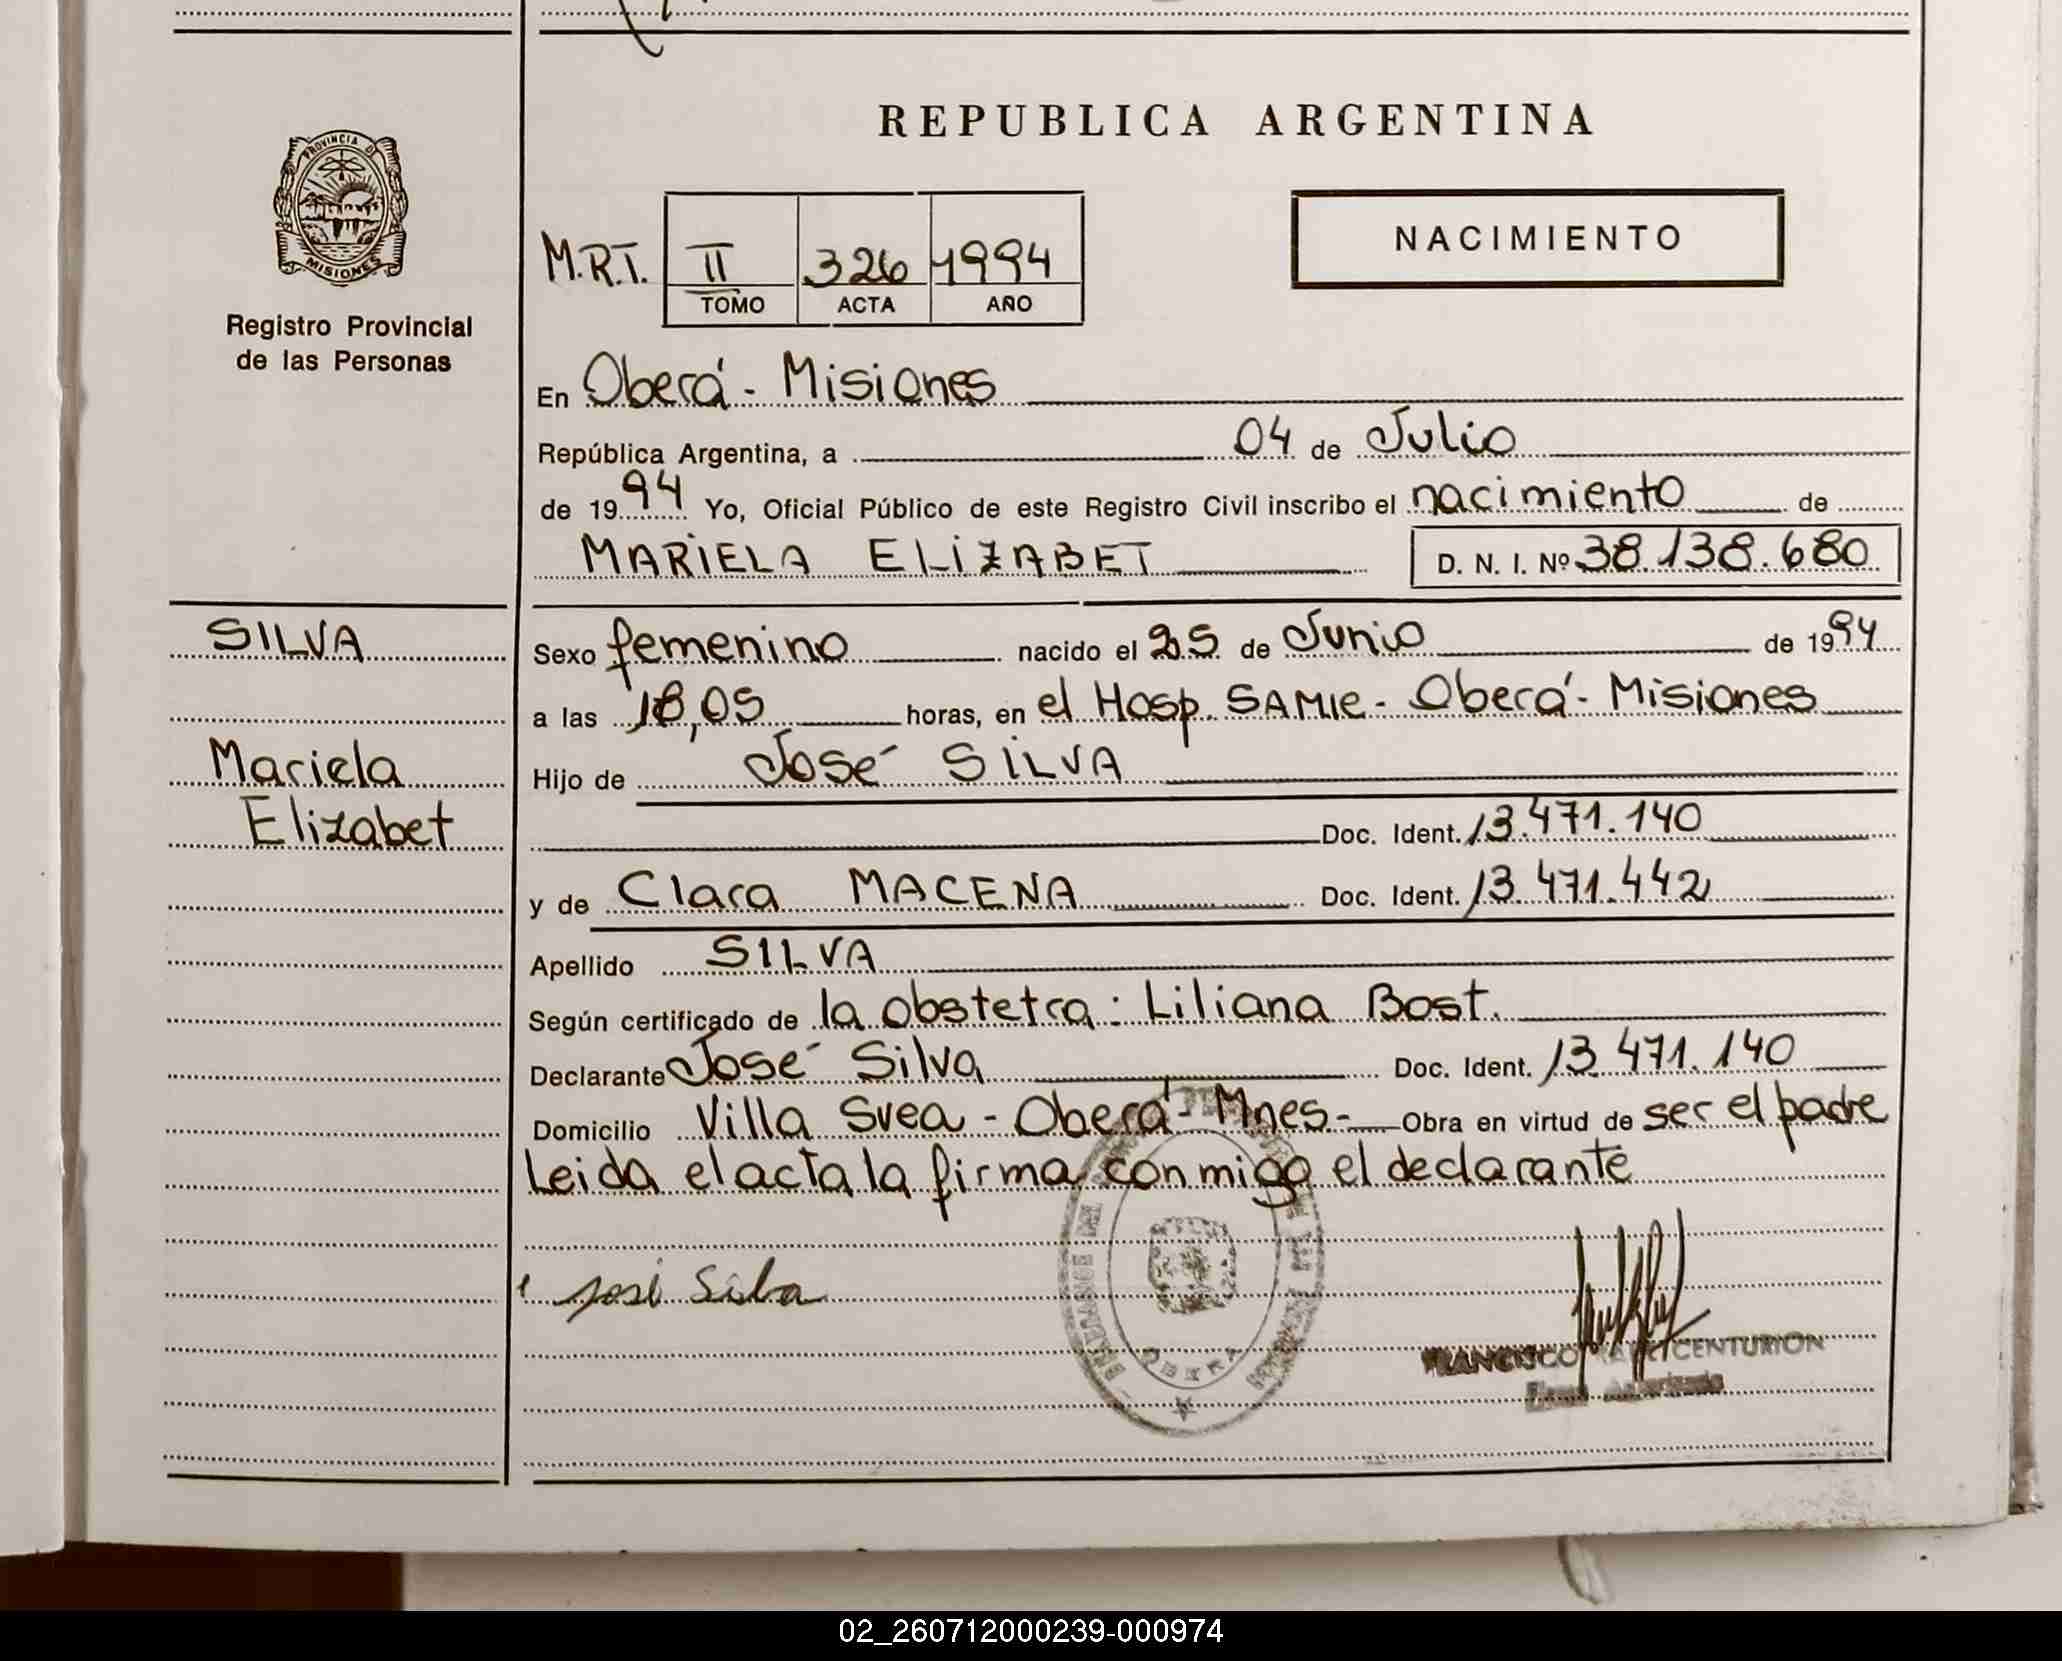 REPUBLICA ARGENTINA
PROVINCIA DE
MISIONES
Registro Provincial
de las Personas
M.R.T. II 326 1994
TOMO ACTA AÑO
NACIMIENTO
En Oberá - Misiones
República Argentina, a 04 de Julio
de 1994 Yo, Oficial Público de este Registro Civil inscribo el nacimiento de
MARIELA ELIZABET D. N. I. Nº 38.138.680
SILVA
Mariela
Elizabet
Sexo femenino nacido el 25 de Junio de 1994
a las 18,05 horas, en el Hosp. SAMIC - Oberá - Misiones
Hijo de José SILVA
Doc. Ident. 13.471.140
y de Clara MACENA Doc. Ident. 13.471.442
Apellido SILVA
Según certificado de la obstetra: Liliana Bost.
Declarante José Silva Doc. Ident. 13.471.140
Domicilio Villa Svea - Oberá - Mnes - Obra en virtud de ser el padre
Leida el acta la firma conmigo el declarante
José Silva
OBERA
FRANCISCO CENTURION
Firma Autorizada
02_260712000239-000974